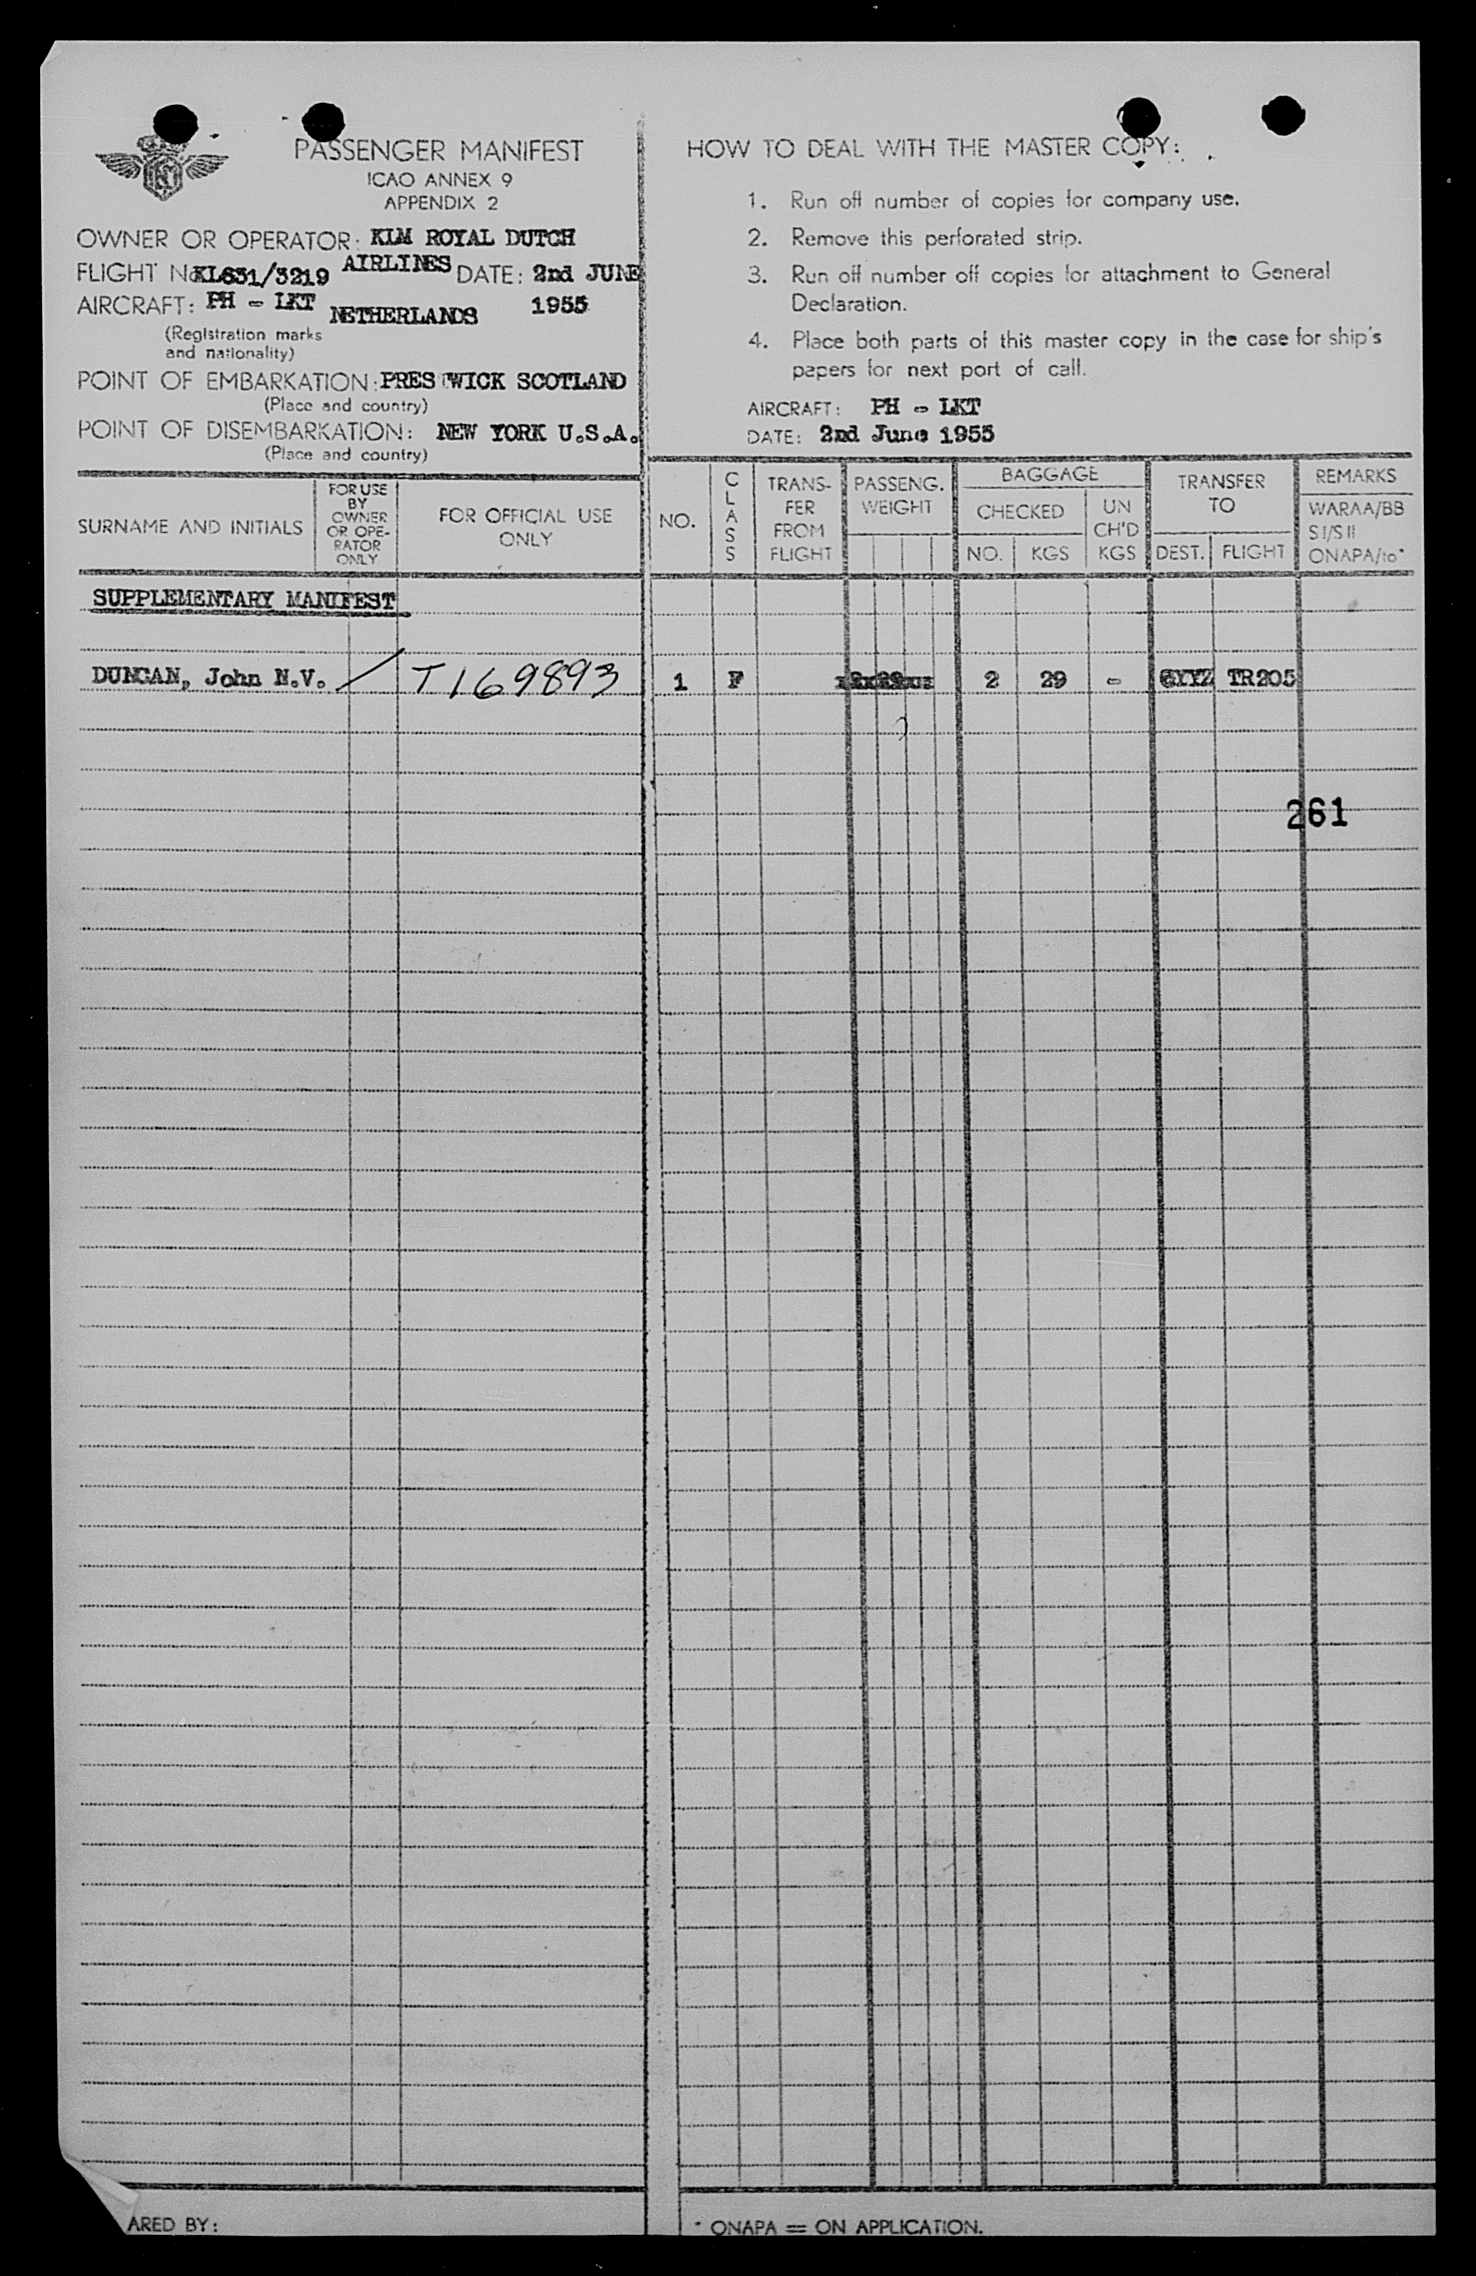 PASSENGER MANIFEST
ICAO ANNEX 9
APPENDIX 2
OWNER OR OPERATOR: KLM ROYAL DUTCH
AIRLINES
FLIGHT No KL631/3219 DATE: 2nd JUNE
1955
AIRCRAFT: PH - LKT NETHERLANDS
(Registration marks
and nationality)
POINT OF EMBARKATION: PRESTWICK SCOTLAND
(Place and country)
POINT OF DISEMBARKATION: NEW YORK U.S.A.
(Place and country)
HOW TO DEAL WITH THE MASTER COPY:
1. Run off number of copies for company use.
2. Remove this perforated strip.
3. Run off number off copies for attachment to General
Declaration.
4. Place both parts of this master copy in the case for ship's
papers for next port of call.
AIRCRAFT: PH - LKT
DATE: 2nd June 1955
SURNAME AND INITIALS
FOR USE
BY
OWNER
OR OPE-
RATOR
ONLY
FOR OFFICIAL USE
ONLY
NO.
CLASS
TRANS-
FER
FROM
FLIGHT
PASSENG.
WEIGHT
BAGGAGE
CHECKED
NO. KGS
UN
CH'D
KGS
TRANSFER
TO
DEST. FLIGHT
REMARKS
WARAA/BB
SI/SII
ONAPA/to*
SUPPLEMENTARY MANIFEST
DUNCAN, John N.V. / T169893 1 F 2 29 - GYYZ TR205
261
ARED BY:
* ONAPA = ON APPLICATION.